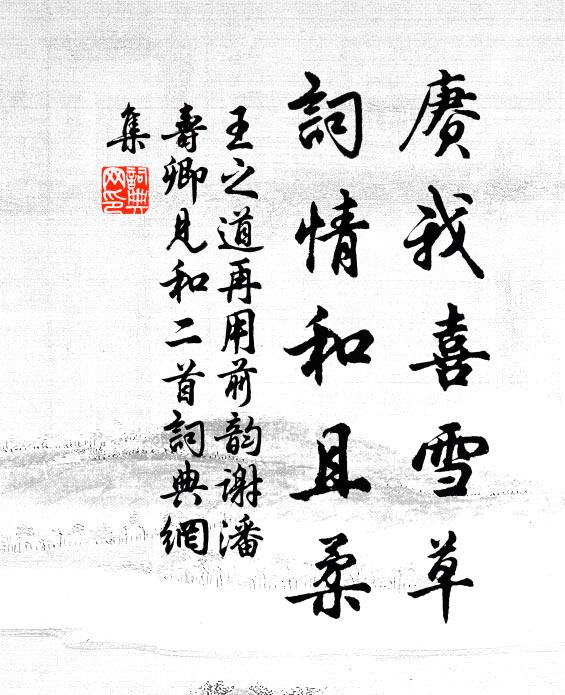 赓我喜雪草
詞情和且柔
王之道再用前韵谢潘
壽卿見和二首詞典網
集
詞典
网印